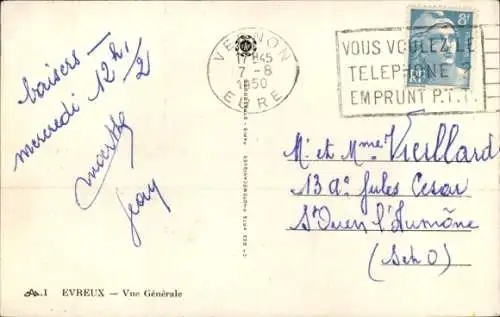 baisers -
mercredi 12h 1/2
Marthe
Jean
VERNON
17H45
7 - 8
1950
EURE
8F
VOUS VOULEZ LE
TELEPHONE
EMPRUNT P.T.T.
M. et Mme Vieillard
13 Av. Jules César
St Ouen l'Aumône
(Set O)
1 EVREUX — Vue Générale